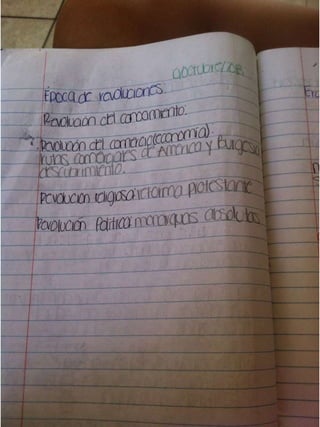 Época de revoluciones.
Revolución del conocimiento.
Revolución del comercio(economía)
rutas comerciales de America y Burgesia
descubrimiento.
Revolución religiosa:reforma protestante
Revolución Política:monarquias absolutas